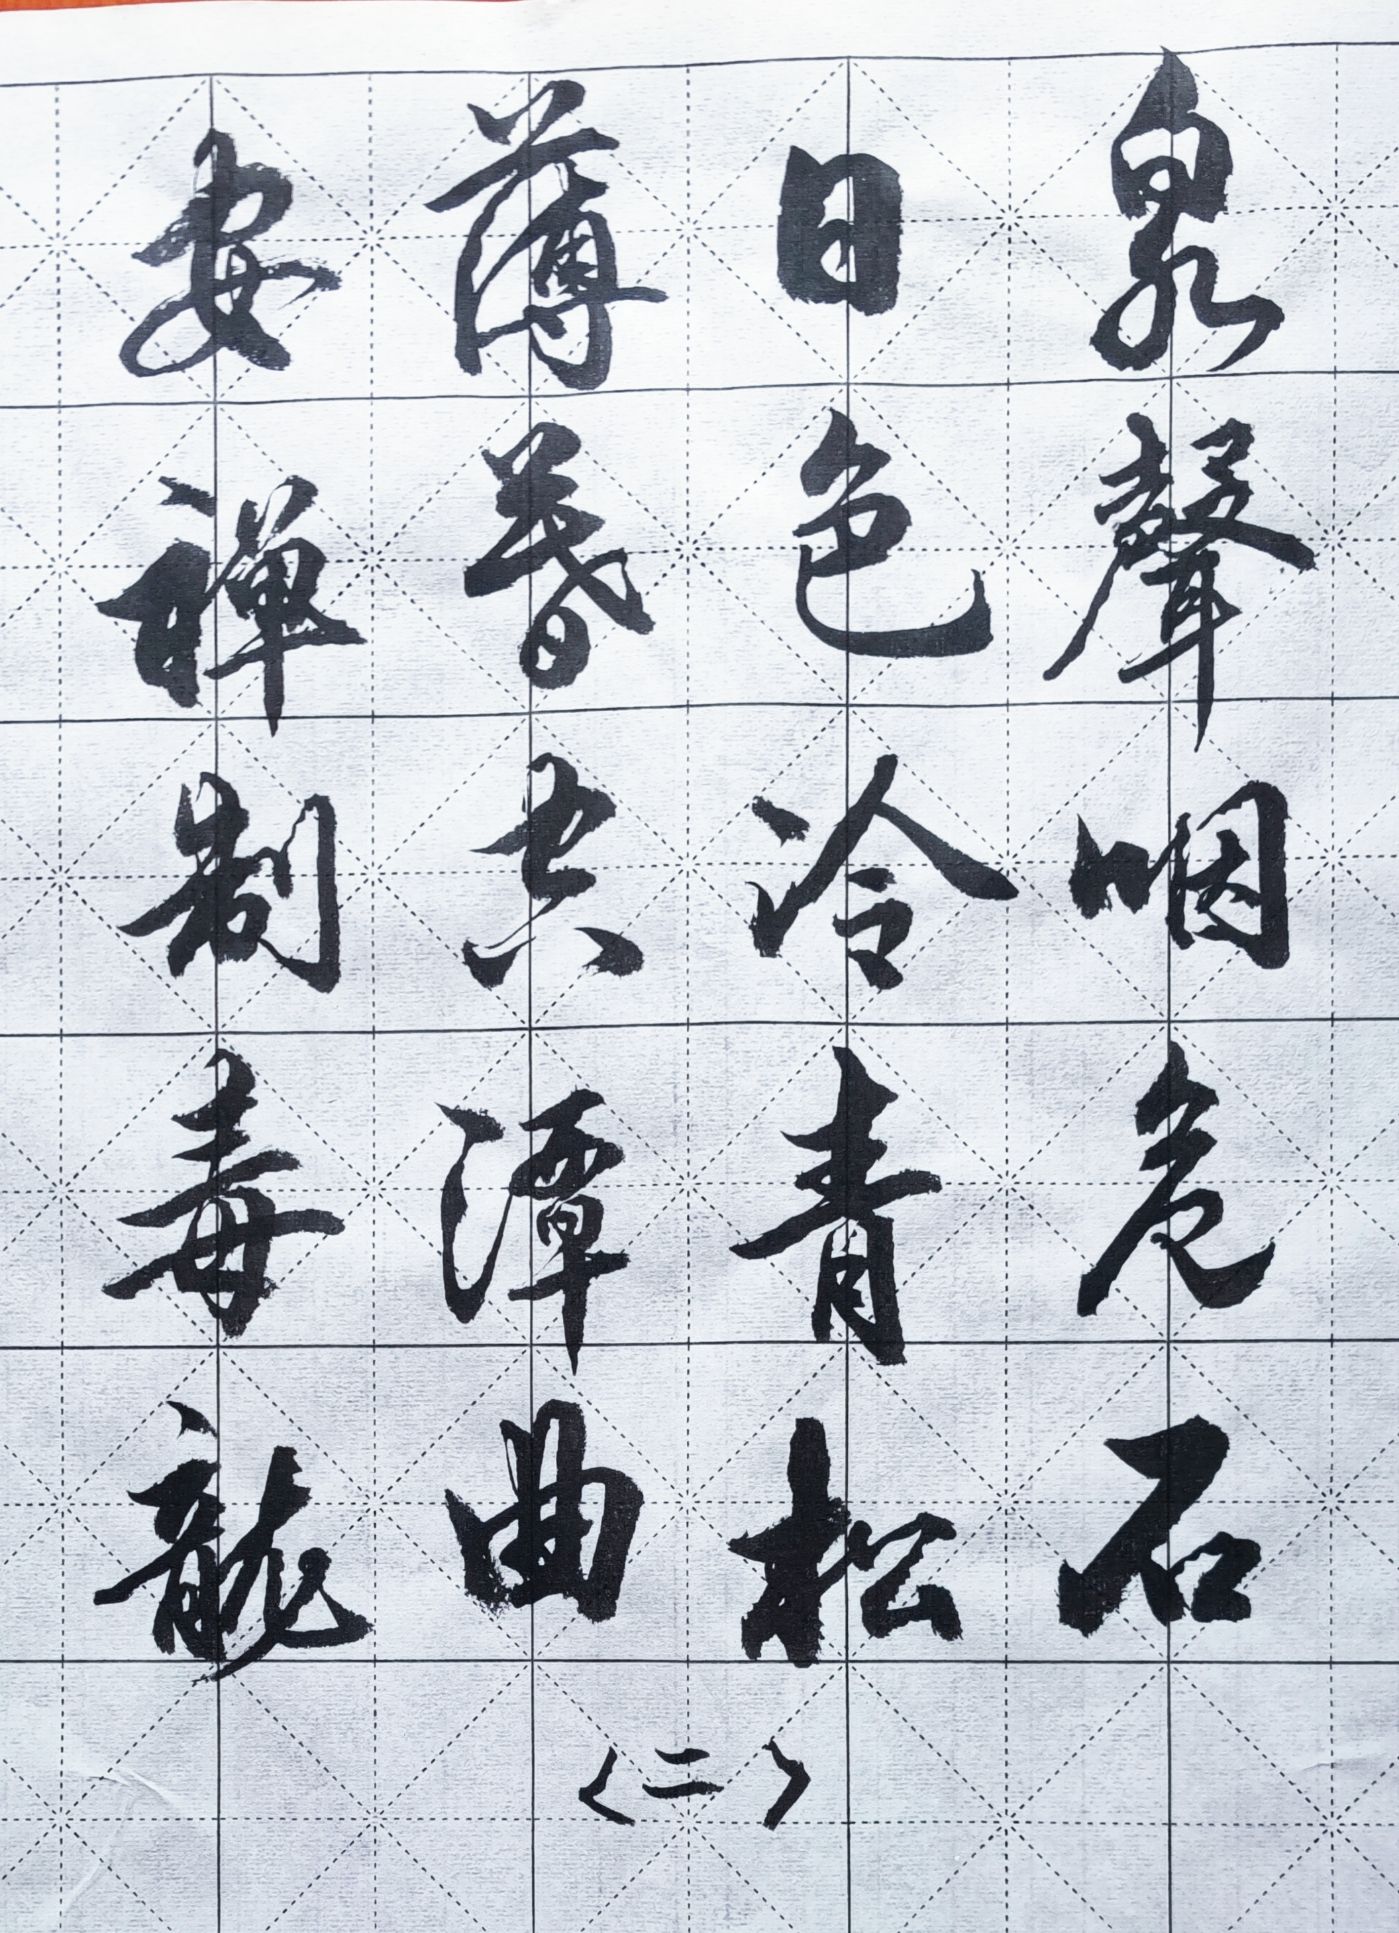 泉聲咽危石
日色冷青松
薄暮空潭曲
安禪制毒龍
〈二〉